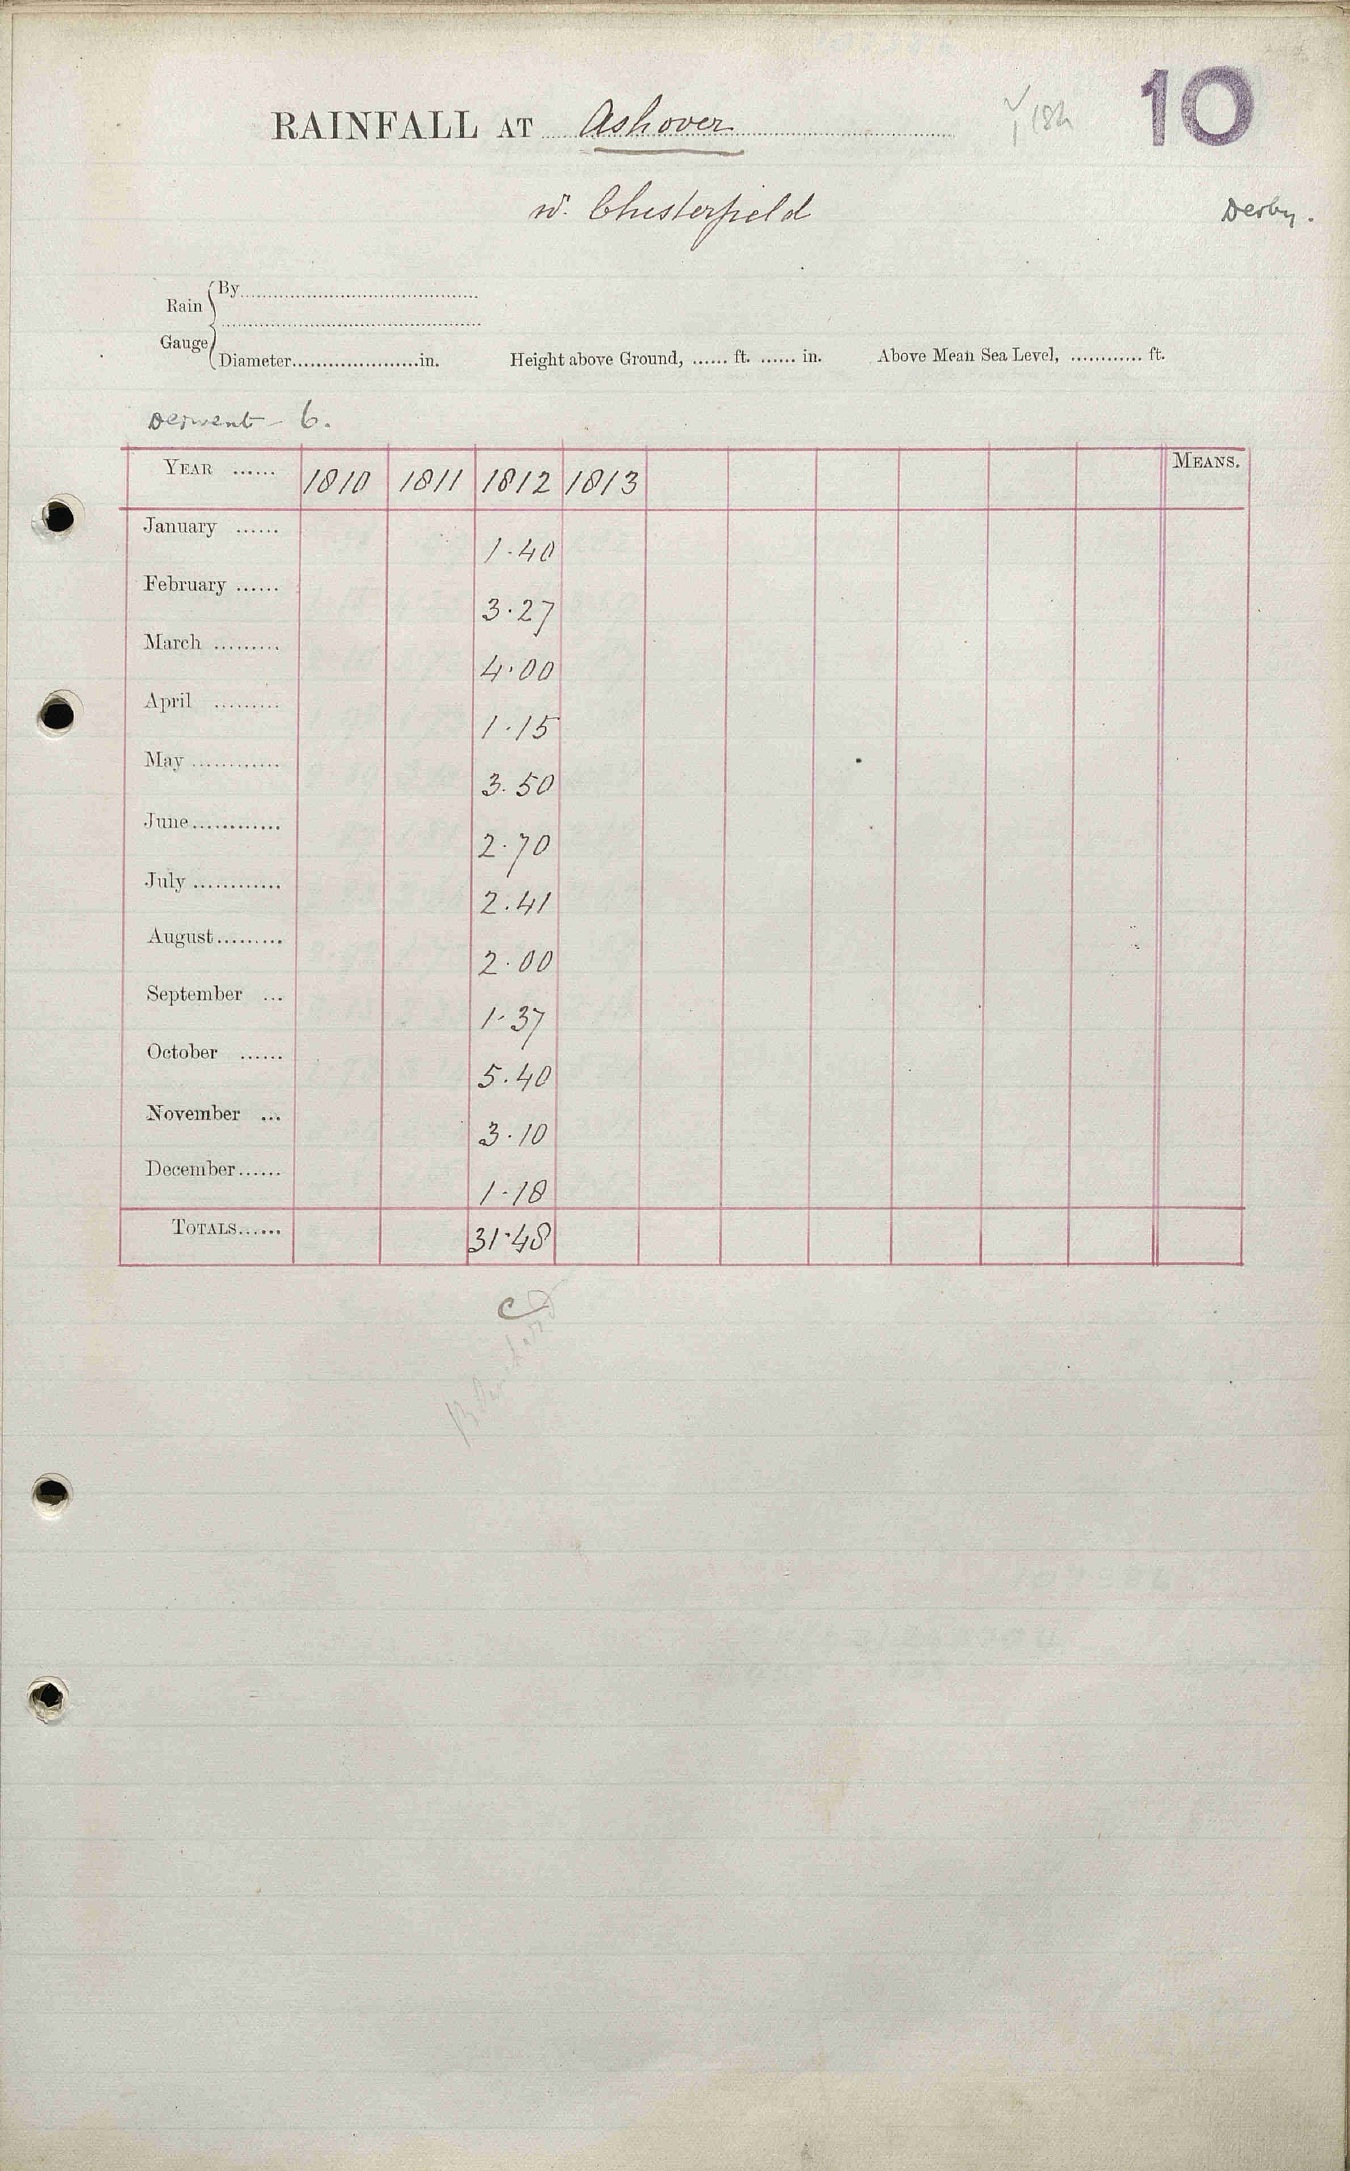 10
RAINFALL AT Ashover
nr. Chesterfield
Derby.
Rain Gauge
By
Diameter in. Height above Ground, ...... ft. ...... in. Above Mean Sea Level, ............ ft.
Derwent - 6.
YEAR ...... 1810 1811 1812 1813 MEANS.
January ...... 1.40
February ...... 3.27
March ......... 4.00
April ......... 1.15
May ............ 3.50
June ............ 2.70
July ............ 2.41
August ......... 2.00
September ... 1.37
October ...... 5.40
November ... 3.10
December ...... 1.18
TOTALS ...... 31.48